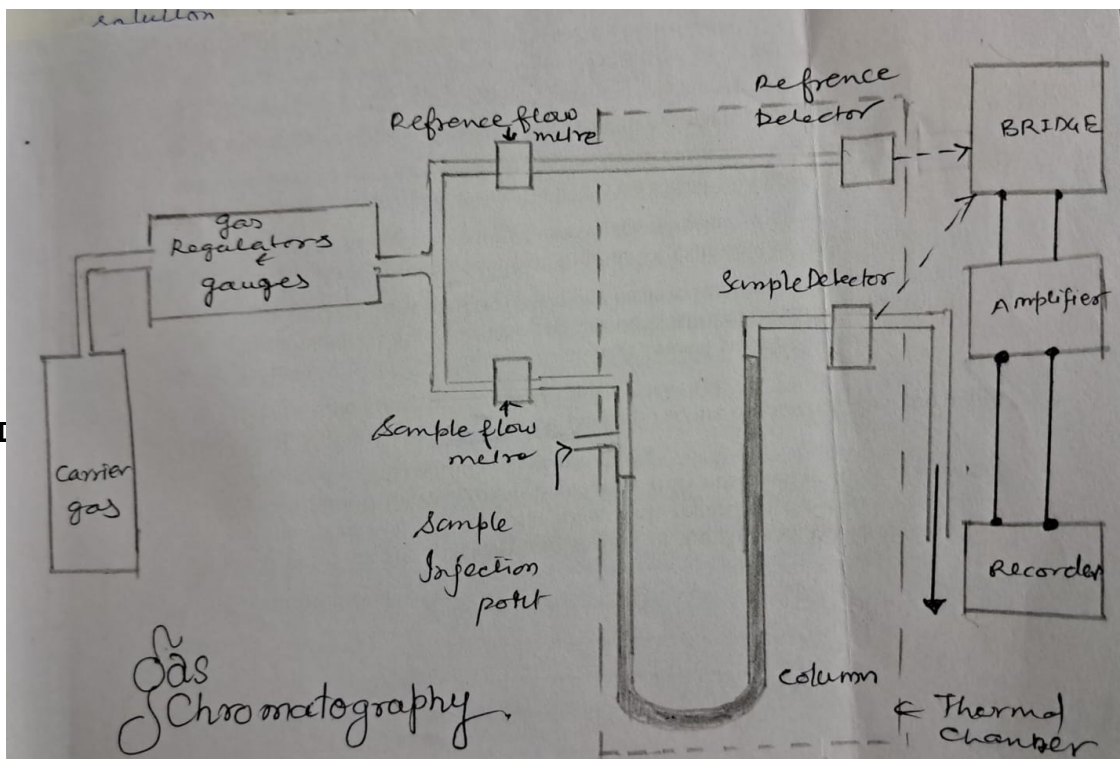 solution
Refrence
Detector
BRIDGE
Refrence flow
metre
gas
Regulators
gauges
Sample Detector
Amplifier
Sample flow
metre
Carrier
gas
Sample
Injection
port
Recorder
Column
Thermal
Chamber
Gas
Chromatography.